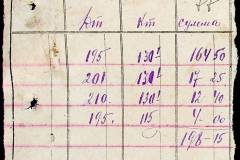 Дт Кт сумма
195 130¹ 164 50
201 130¹ 17 25
210 130¹ 12 40
195 115 4 00
198 15